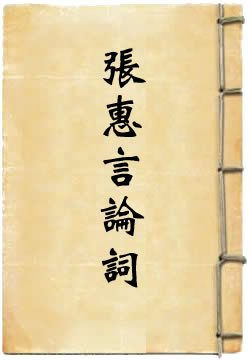 張惠言論詞